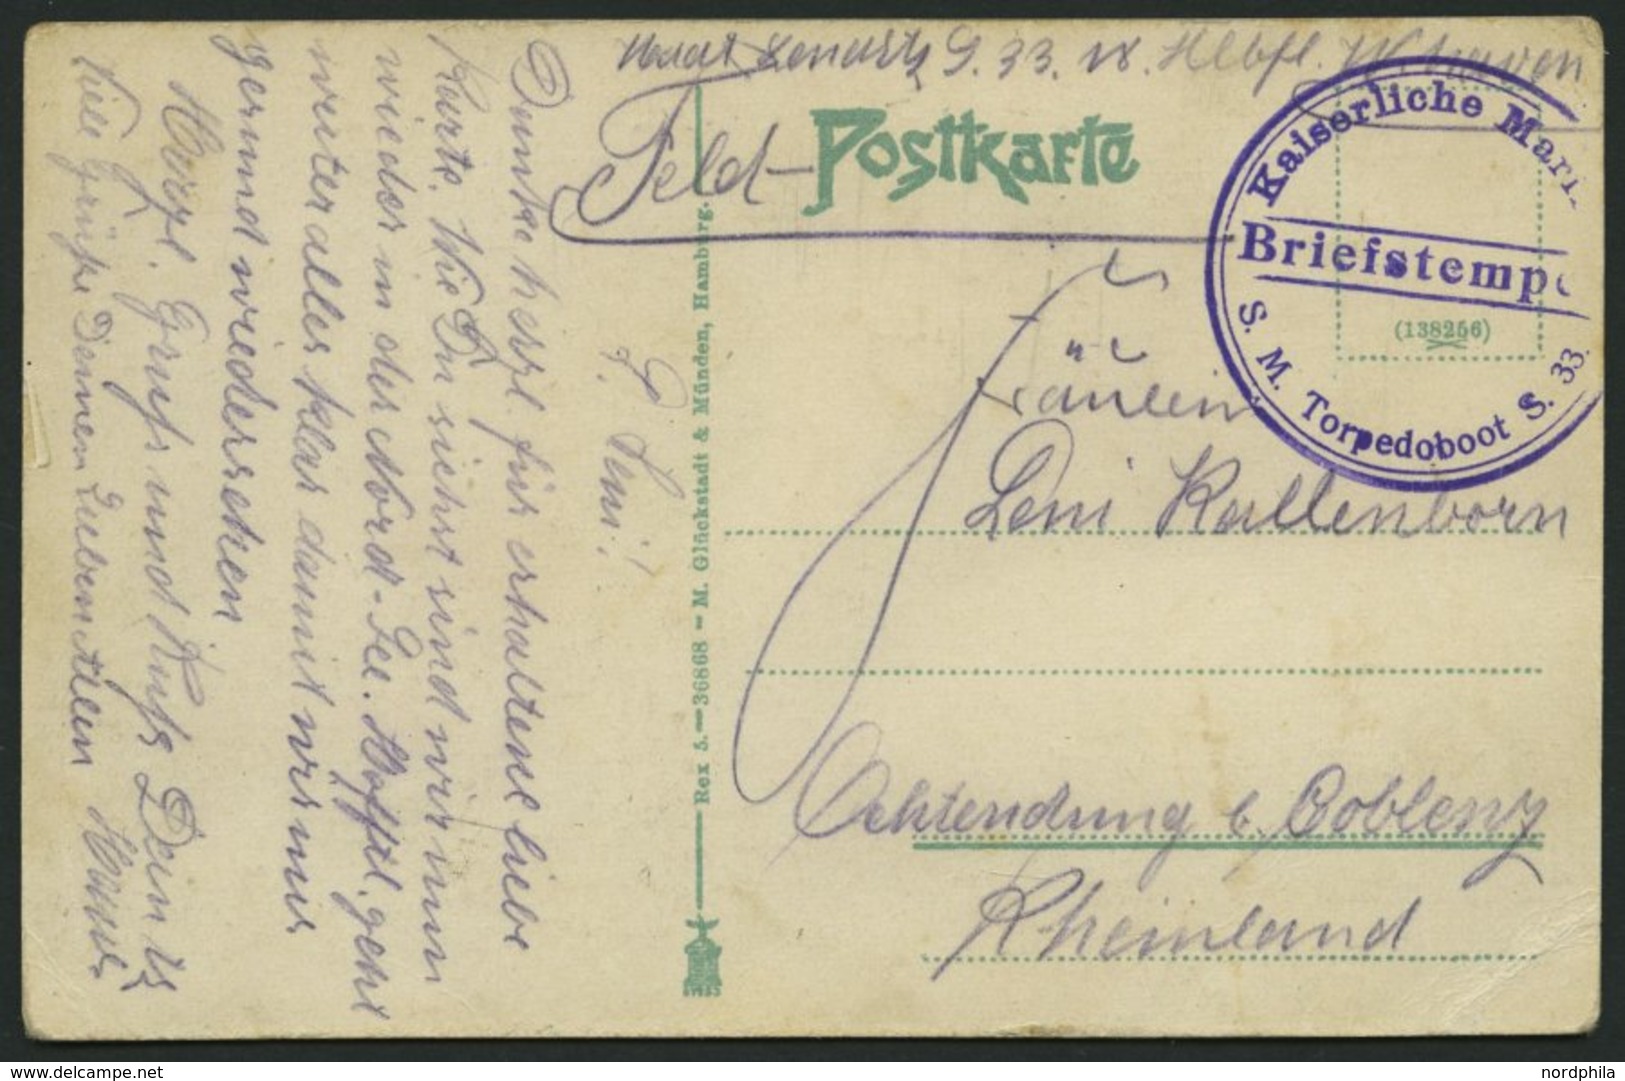 S. 33. IV. Hlbfl. W'haven
Feld-Postkarte
Kaiserliche Mari
Briefstempe
S. M. Torpedoboot S. 33.
(138256)
Fräulein
Leni Kallenborn
Ochtendung b. Coblenz
Rheinland
Rex 5. — 36868 - M. Glückstadt & Münden, Hamburg.
L. Leni!
Danke herzl. für erhaltene liebe
Karte. Wie Du siehst sind wir nun
wieder in der Nord-See. Hofftl. geht
weiter alles klar damit wir uns
gesund wiedersehen
Herzl. Gruß und Kuß Dein
Viele Grüße Deinen Lieben Allen
nordphila